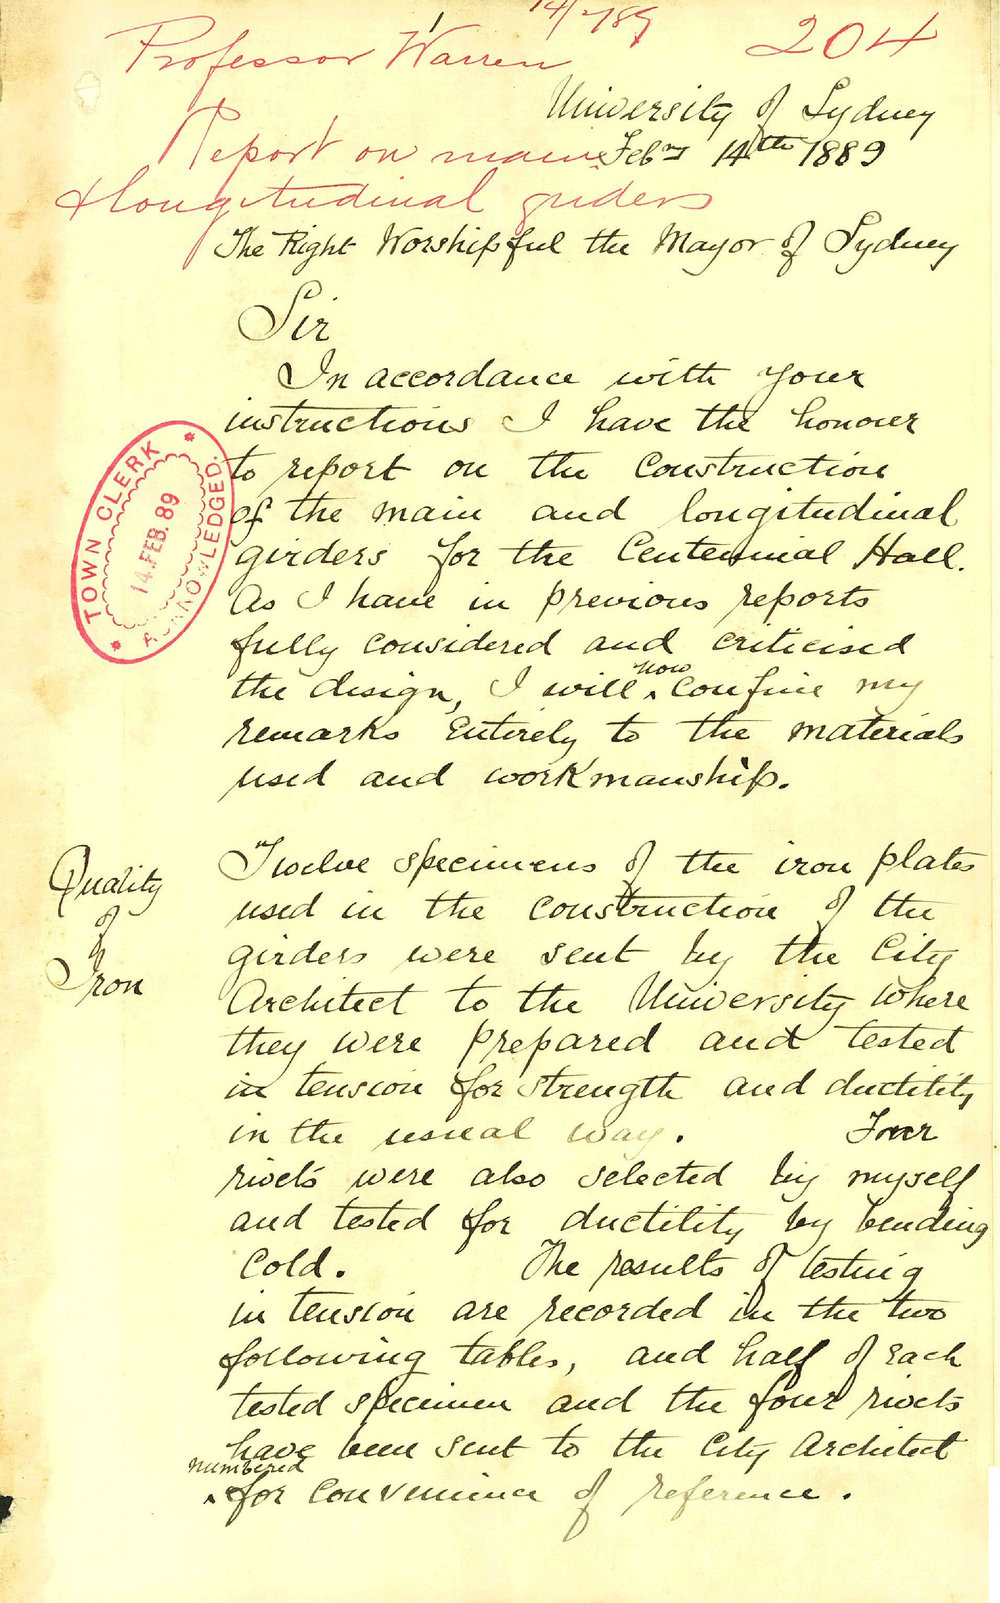 14/2/89
Professor Warren
204
Report on main
& longitudinal girders
University of Sydney
Febry 14th 1889
The Right Worshipful the Mayor of Sydney
Sir
In accordance with your
instructions I have the honour
to report on the construction
of the main and longitudinal
girders for the Centennial Hall.
As I have in previous reports
fully considered and criticised
the design, I will now confine my
remarks entirely to the materials
used and workmanship.
TOWN CLERK
14.FEB.89
ACKNOWLEDGED.
Quality
of
Iron
Twelve specimens of the iron plates
used in the construction of the
girders were sent by the City
Architect to the University where
they were prepared and tested
in tension for strength and ductility
in the usual way. Four
rivets were also selected by myself
and tested for ductility by bending
cold. The results of testing
in tension are recorded in the two
following tables, and half of each
tested specimen and the four rivets
have been sent to the City Architect
numbered for convenience of reference.